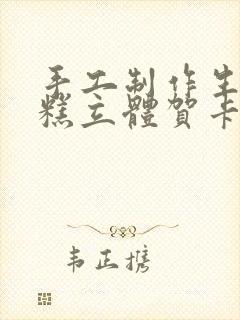 手工制作生
糕立體賀卡
韦正携